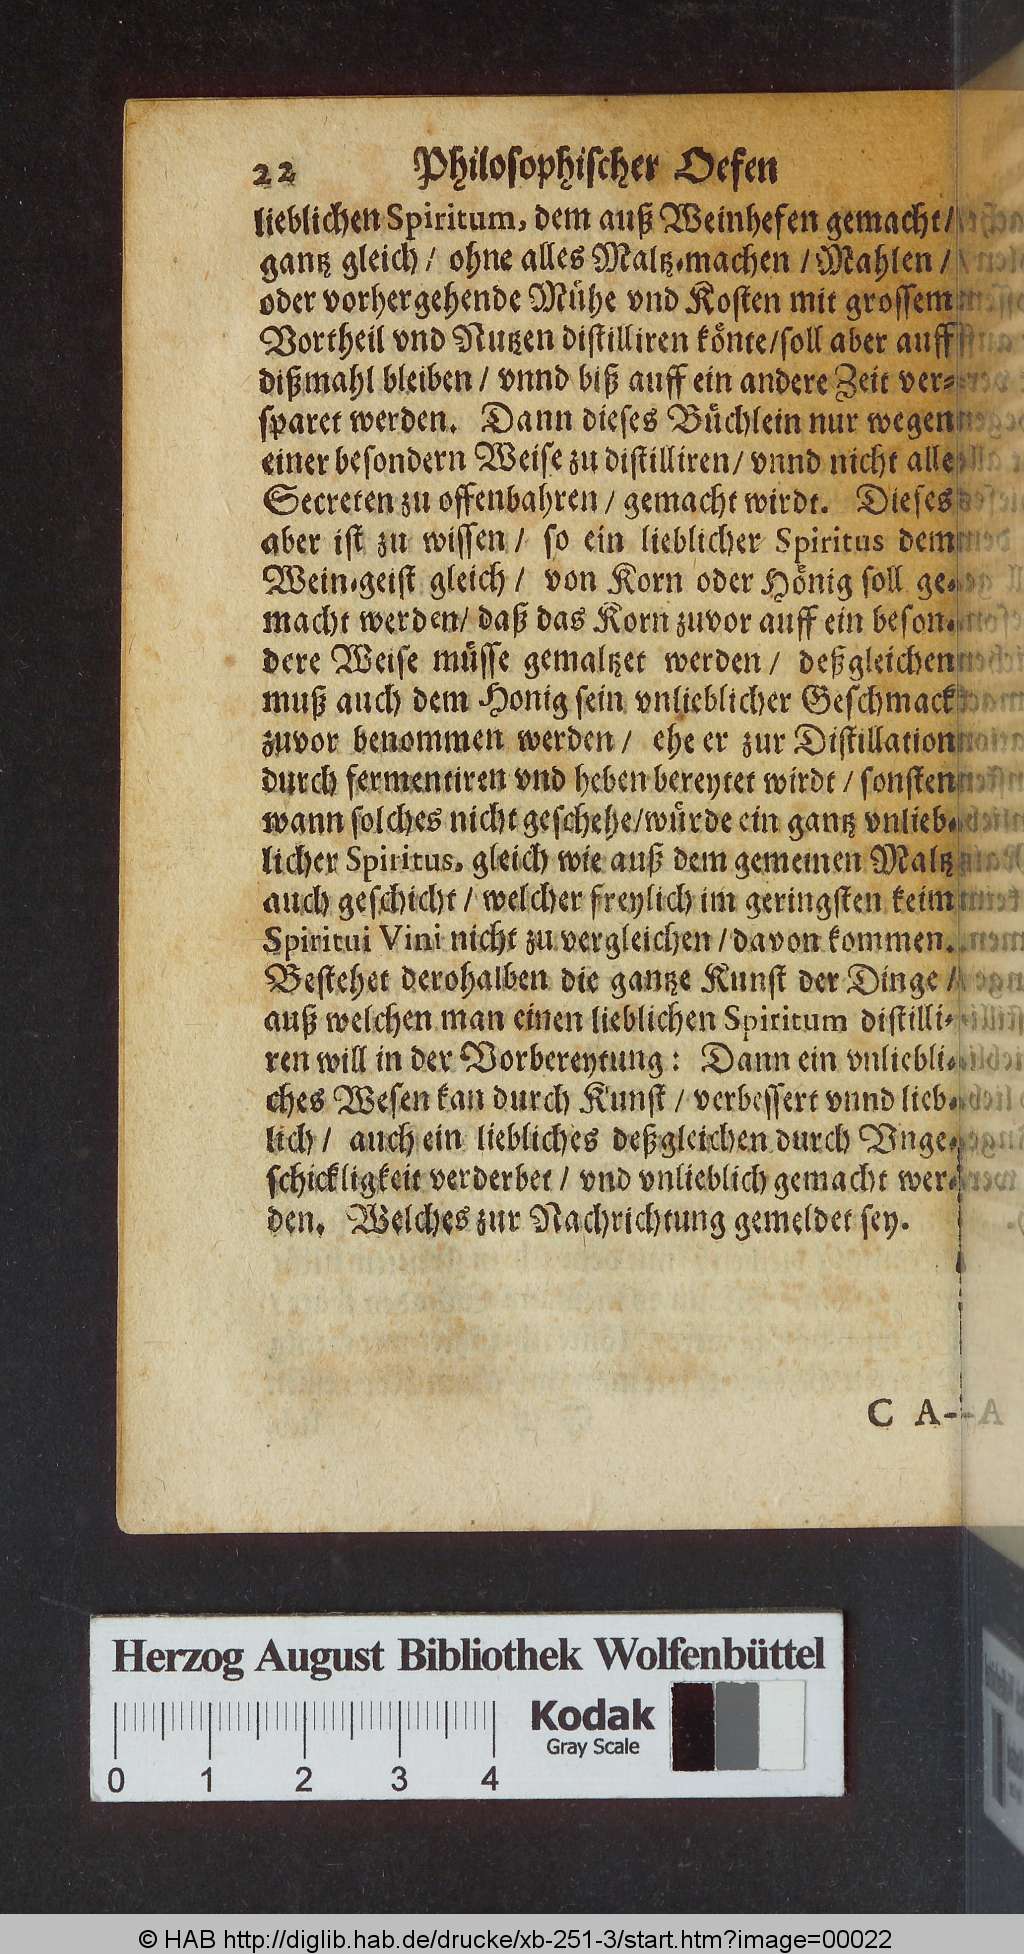 22 Philosophischer Oefen
lieblichen Spiritum, dem auß Weinhefen gemacht/
gantz gleich / ohne alles Maltz-machen / Mahlen /
oder vorhergehende Mühe vnd Kosten mit grossem
Vortheil vnd Nutzen distilliren könte/soll aber auff
dißmahl bleiben / vnnd biß auff ein andere Zeit ver-
sparet werden. Dann dieses Büchlein nur wegen
einer besondern Weise zu distilliren/ vnnd nicht alle
Secreten zu offenbahren / gemacht wirdt. Dieses
aber ist zu wissen / so ein lieblicher Spiritus dem
Wein-geist gleich / von Korn oder Hönig soll ge-
macht werden/ daß das Korn zuvor auff ein beson-
dere Weise müsse gemaltzet werden / deßgleichen
muß auch dem Honig sein vnlieblicher Geschmack
zuvor benommen werden / ehe er zur Distillation
durch fermentiren vnd heben bereytet wirdt / sonsten
wann solches nicht geschehe/würde ein gantz vnlieb-
licher Spiritus, gleich wie auß dem gemeinen Maltz
auch geschicht / welcher freylich im geringsten keim
Spiritui Vini nicht zu vergleichen / davon kommen.
Bestehet derohalben die gantze Kunst der Dinge /
auß welchen man einen lieblichen Spiritum distilli-
ren will in der Vorbereytung: Dann ein vnliebli-
ches Wesen kan durch Kunst / verbessert vnnd lieb-
lich / auch ein liebliches deßgleichen durch Vnge-
schickligkeit verderbet / vnd vnlieblich gemacht wer-
den. Welches zur Nachrichtung gemeldet sey.
C A-
Herzog August Bibliothek Wolfenbüttel
Kodak
Gray Scale
0 1 2 3 4
© HAB http://diglib.hab.de/drucke/xb-251-3/start.htm?image=00022